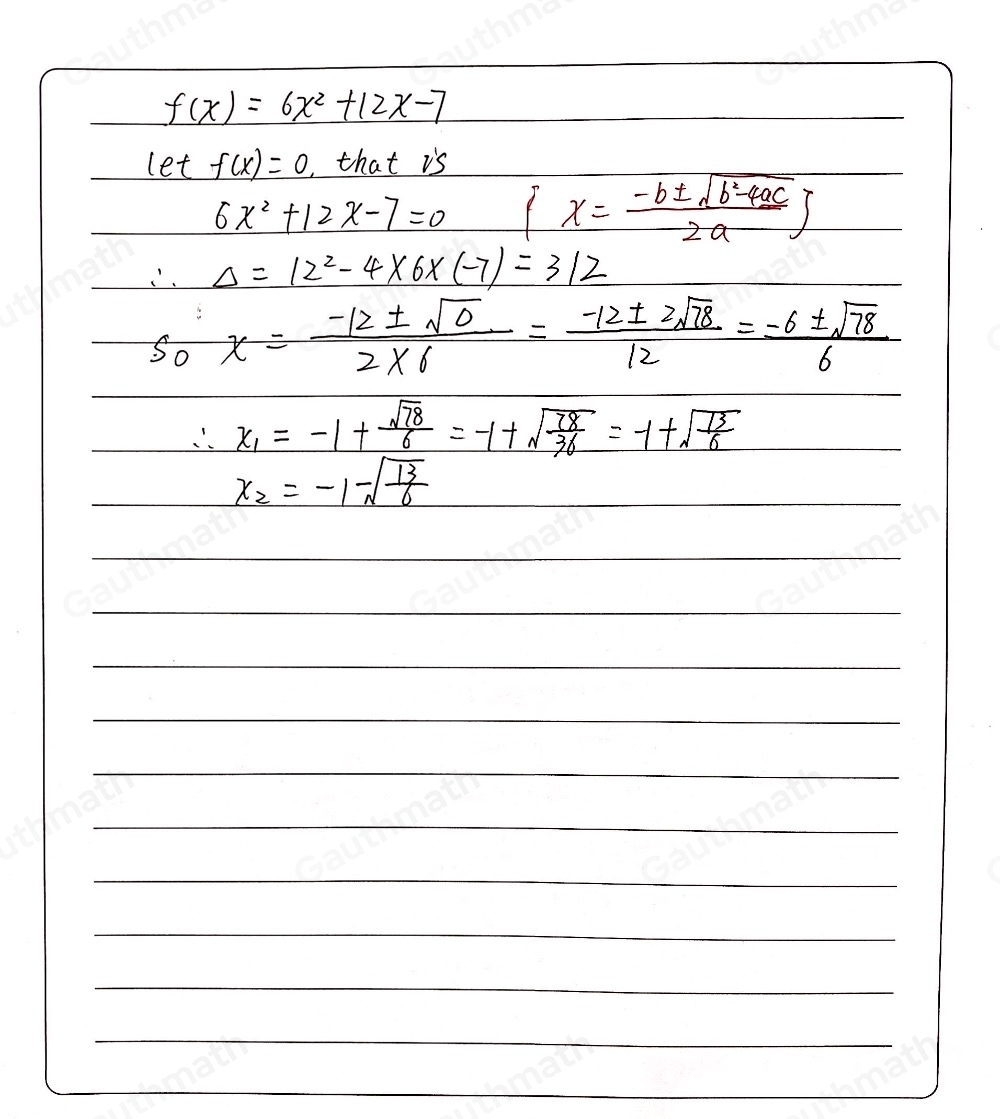 f(x) = 6x² + 12x - 7
let f(x) = 0, that is
6x² + 12x - 7 = 0 { x = (-b ± √(b² - 4ac)) / 2a }
∴ Δ = 12² - 4 × 6 × (-7) = 312
so x = (-12 ± √0) / (2 × 6) = (-12 ± 2√78) / 12 = (-6 ± √78) / 6
∴ x₁ = -1 + √78/6 = -1 + √(78/36) = -1 + √(13/6)
x₂ = -1 - √(13/6)
Gauthmath